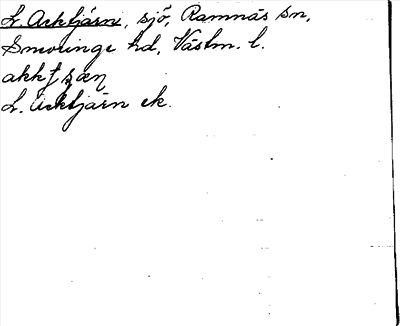 L. Arktjärn, sjö, Ramnäs sn,
Snevringe hd, Västm. l.
L. Arktjärn ek.